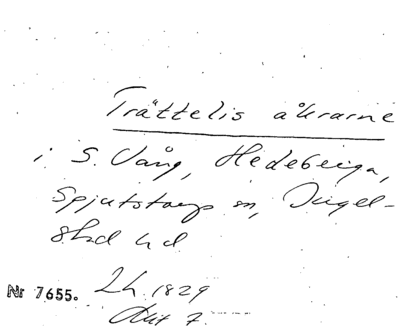 Trättelis åkrarne
i S. Vång, Hedeberga,
Spjutstorps sn, Ingel-
stad hd
Lh. 1829
Nr 7655.
Akt 7.